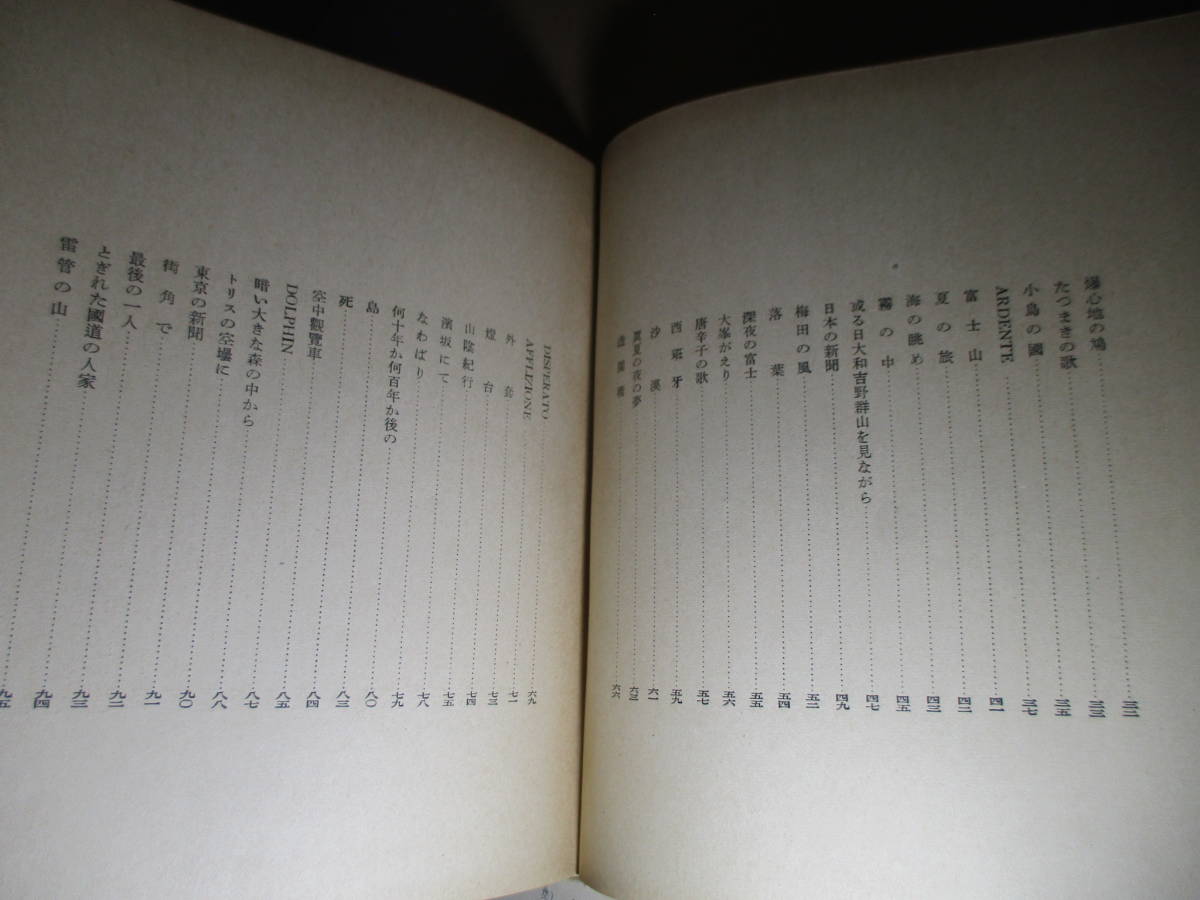 爆心地の鳩 三二
たつまきの歌 三三
小鳥の國 三五
ARDENTE 三七
富士山 四一
夏の旅 四二
海の眺め 四三
霧の中 四五
或る日大和吉野群山を見ながら 四七
日本の新聞 四九
梅田の風 五二
落葉 五四
深夜の富士 五五
大峯がえり 五六
唐辛子の歌 五七
西班牙 五九
沙漠 六一
眞夏の夜の夢 六三
六六
DESPERATO 六九
APPLIZIONE 七一
外套 七三
燈台 七四
山陰紀行 七五
濱坂にて 七八
なわばり 七九
何十年か何百年か後の 八〇
島 八三
死 八四
空中觀覽車 八五
DOLPHIN 八七
暗い大きな森の中から 八八
トリスの空壜に 九〇
東京の新聞 九一
街角で 九二
最後の一人 九三
とぎれた國道の人家 九四
雷管の山 九五